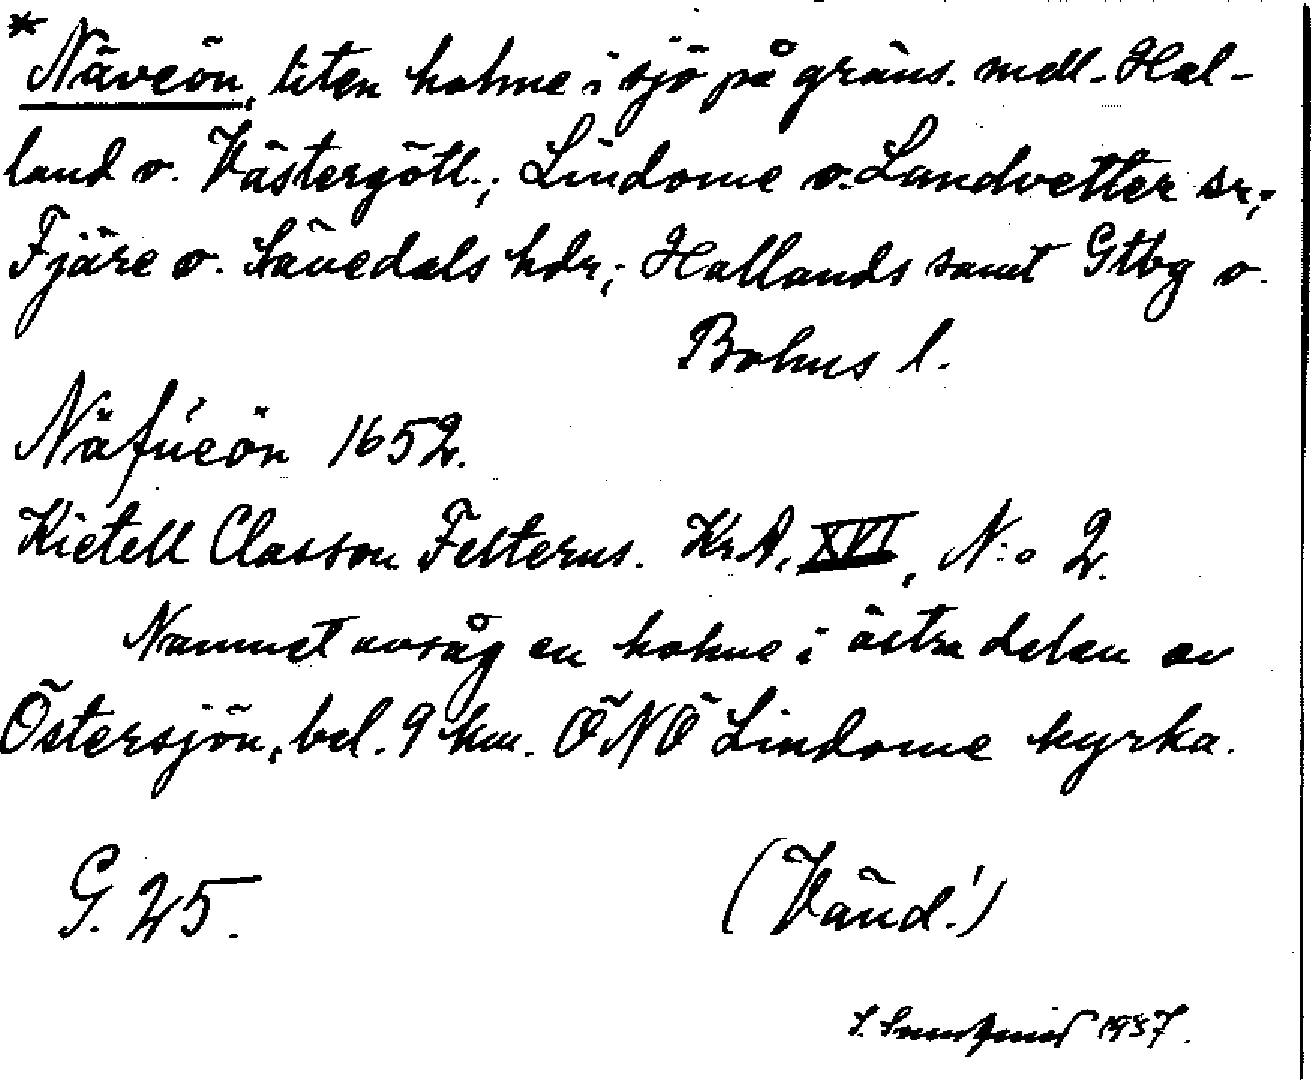 * Näveön, liten holme i sjö på gräns. mell. Hal-
land o. Västergötl.; Lindome o. Landvetter sr;
Fjäre o. Sävedals hdr; Hallands samt Gtbg o.
Bohus l.
Näfúeön 1652.
Kietell Classon Felterus. KrA, XVI, N:o 2.
Namnet avsåg en holme i östra delen av
Östersjön, bel. 9 km. ÖNÖ Lindome kyrka.
G. 25. (Vänd!)
1937.